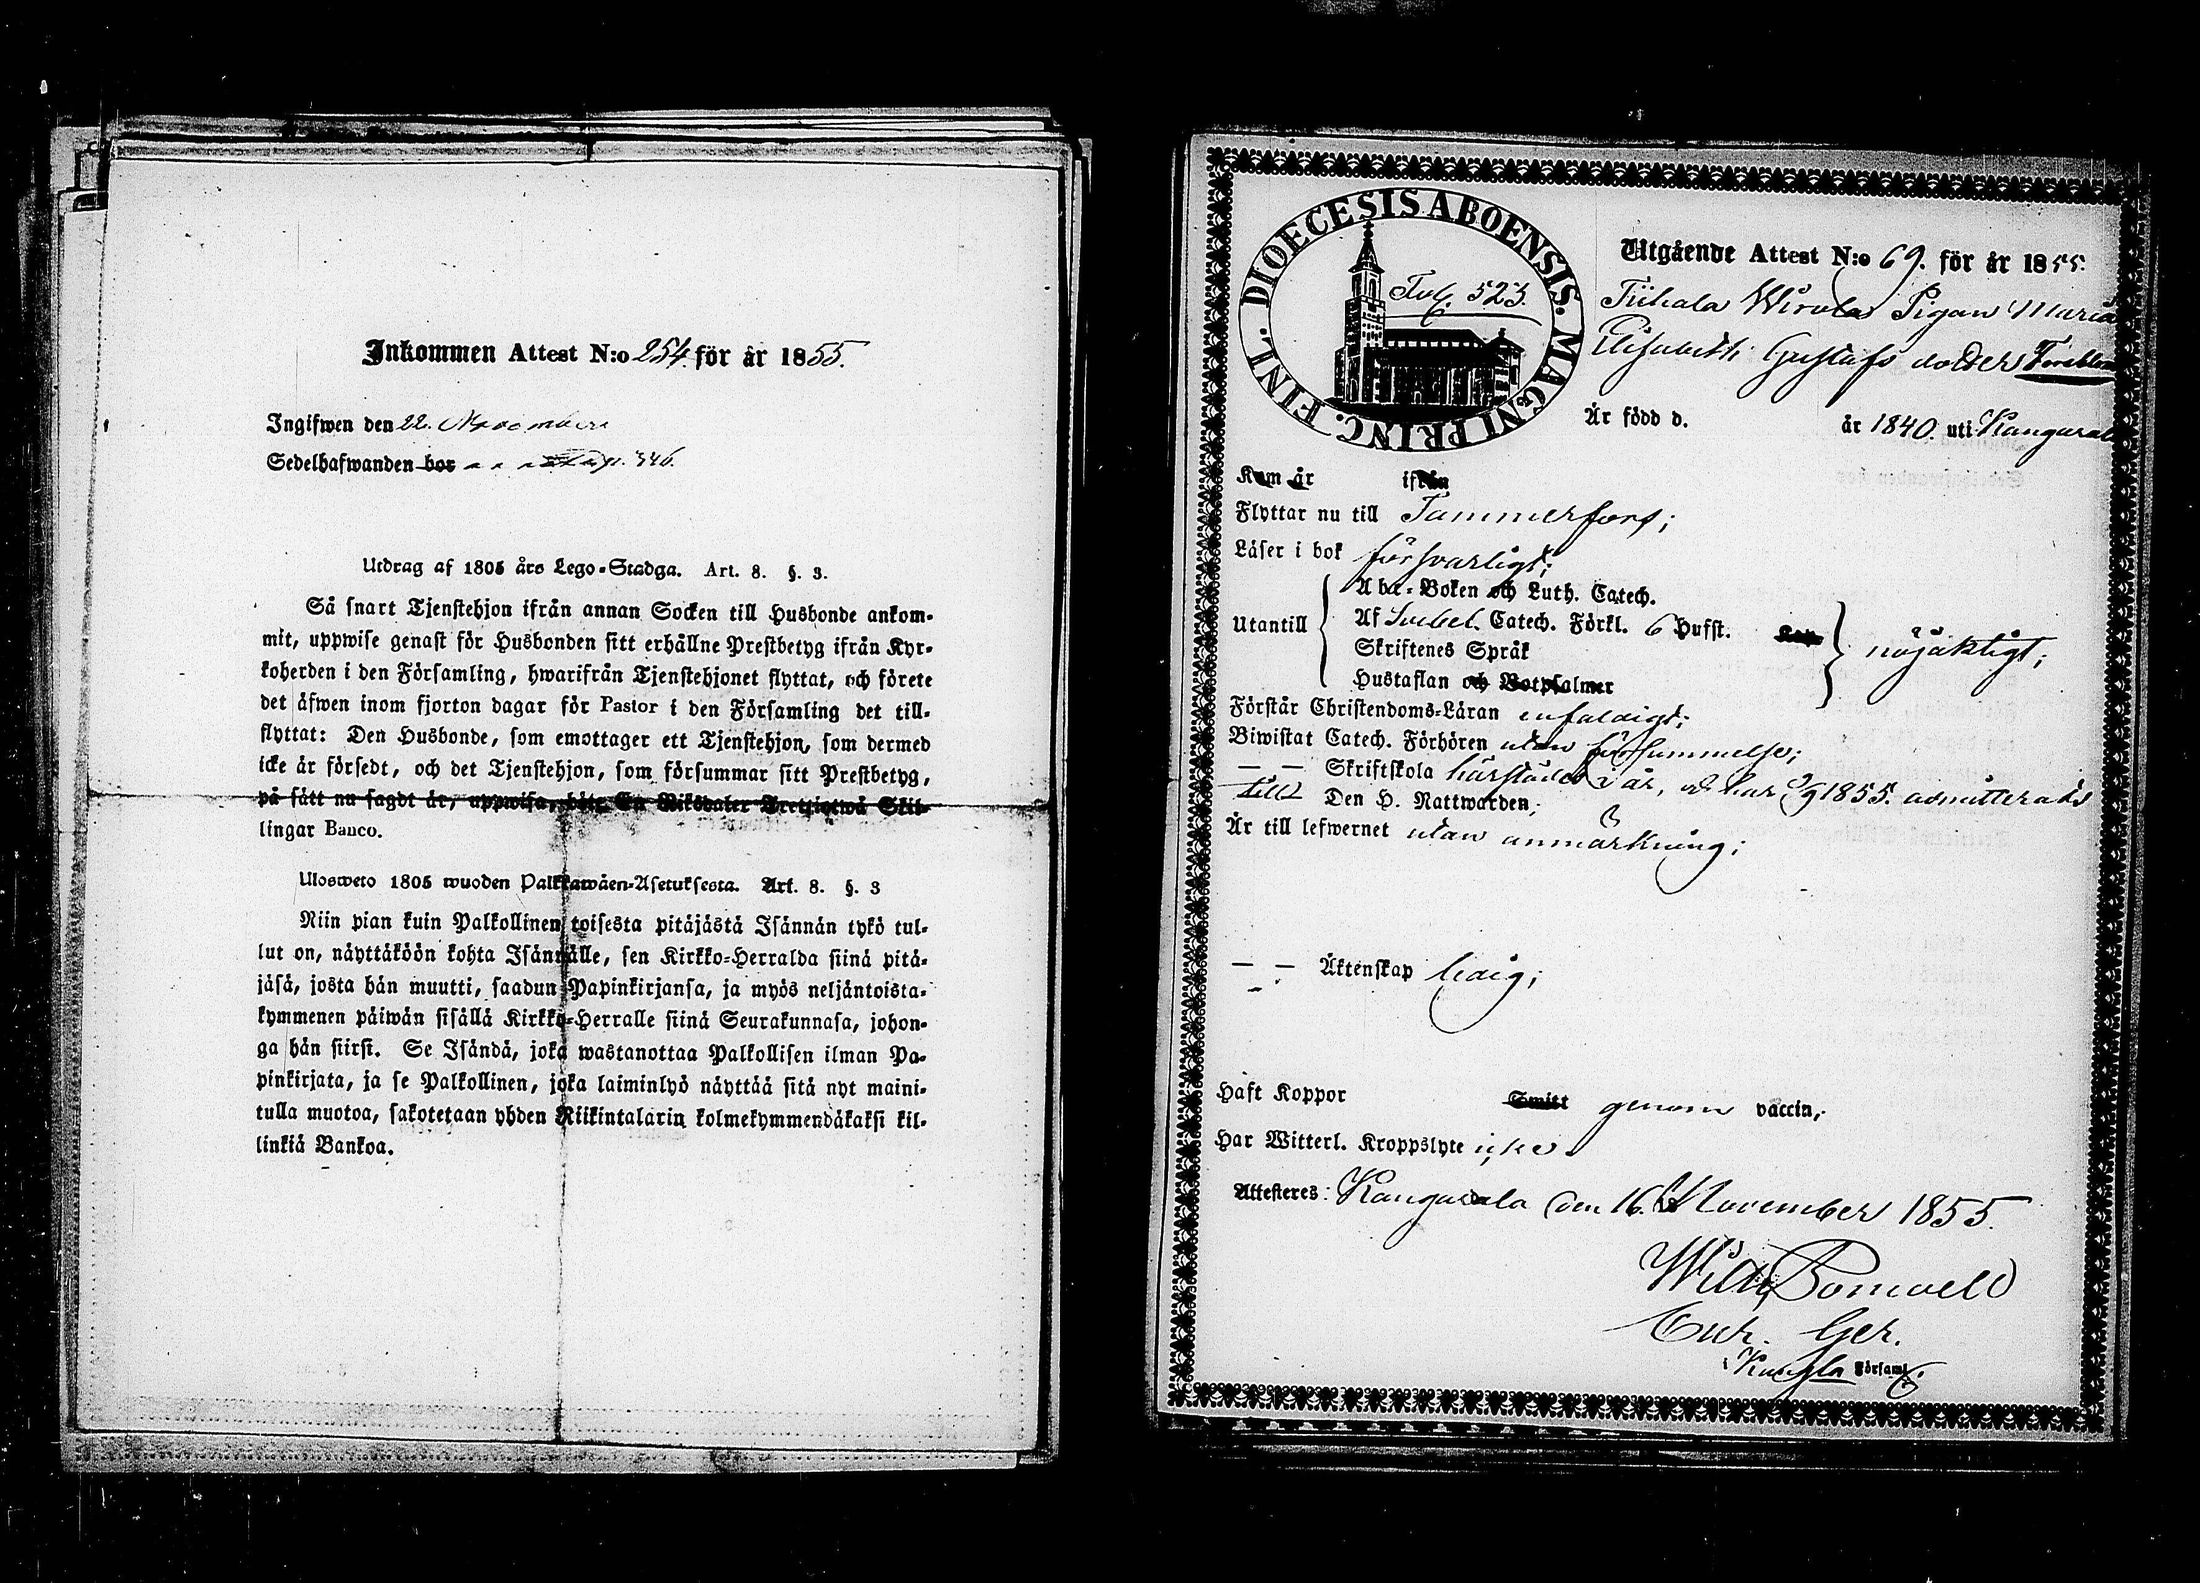 Inkommen Attest N:o 254. för år 1855.
Ingifwen den 22. November
Sedelhafwanden bor 346.
Utdrag af 1805 års Lego-Stadga. Art. 8. §. 3.
Så snart Tjenstehjon ifrån annan Socken till Husbonde ankom-
mit, uppwise genast för Husbonden sitt erhållne Prestbetyg ifrån Kyr-
koherden i den Församling, hwarifrån Tjenstehjonet flyttat, och förete
det äfwen inom fjorton dagar för Pastor i den Församling det till-
flyttat: Den Husbonde, som emottager ett Tjenstehjon, som dermed
icke är försedt, och det Tjenstehjon, som försummar sitt Prestbetyg,
på sätt nu sagdt är, uppwisa, böte En Riksdaler Trettiotwå Skil-
lingar Banco.
Ulosweto 1805 wuoden Palkkawäen-Asetuksesta. Art. 8. §. 3
Niin pian kuin Palkollinen toisesta pitäjästä Isännän tykö tul-
lut on, näyttäköön kohta Isännälle, sen Kirkko-Herralda siinä pitä-
jäsä, josta hän muutti, saadun Papinkirjansa, ja myös neljäntoista-
kymmenen päiwän sisällä Kirkko-Herralle siinä Seurakunnasa, johon-
ga hän siirsi. Se Isändä, joka wastanottaa Palkollisen ilman Pa-
pinkirjata, ja se Palkollinen, joka laiminlyö näyttää sitä nyt maini-
tulla muotoa, sakotetaan yhden Riikintalarin kolmekymmendäkaksi kil-
linkiä Bankoa.
DIOECESIS ABOENSIS. MAGNI PRINC. FINL.
Fol. 523.
Utgående Attest N:o 69. för år 1855.
Tiihala Wirola Pigan Maria
Elisabeth Gustafs dotter
Är född d. år 1840. uti Kangasala
Kom år ifrån
Flyttar nu till Tammerfors;
Läser i bok försvarligt;
Abc-Boken och Luth. Catech.
Utantill Af Svebel. Catech. Förkl. 6 Hufst. nöjaktigt;
Skriftenes Språk
Hustaflan och Botpsalmer
Förstår Christendoms-Läran enfaldigt;
Biwistat Catech. Förhören utan försummelse;
— — Skriftskola härstädes i år, och har 2/9 1855. admitterats
till Den H. Nattwarden;
Är till lefwernet utan anmärkning;
— — Äktenskap ledig;
Haft Koppor Smitt genom vaccin;
Har Witterl. Kroppslyte icke.
Attesteres: Kangasala den 16. November 1855.
Cur. Ger.
i Kangsla Församl.